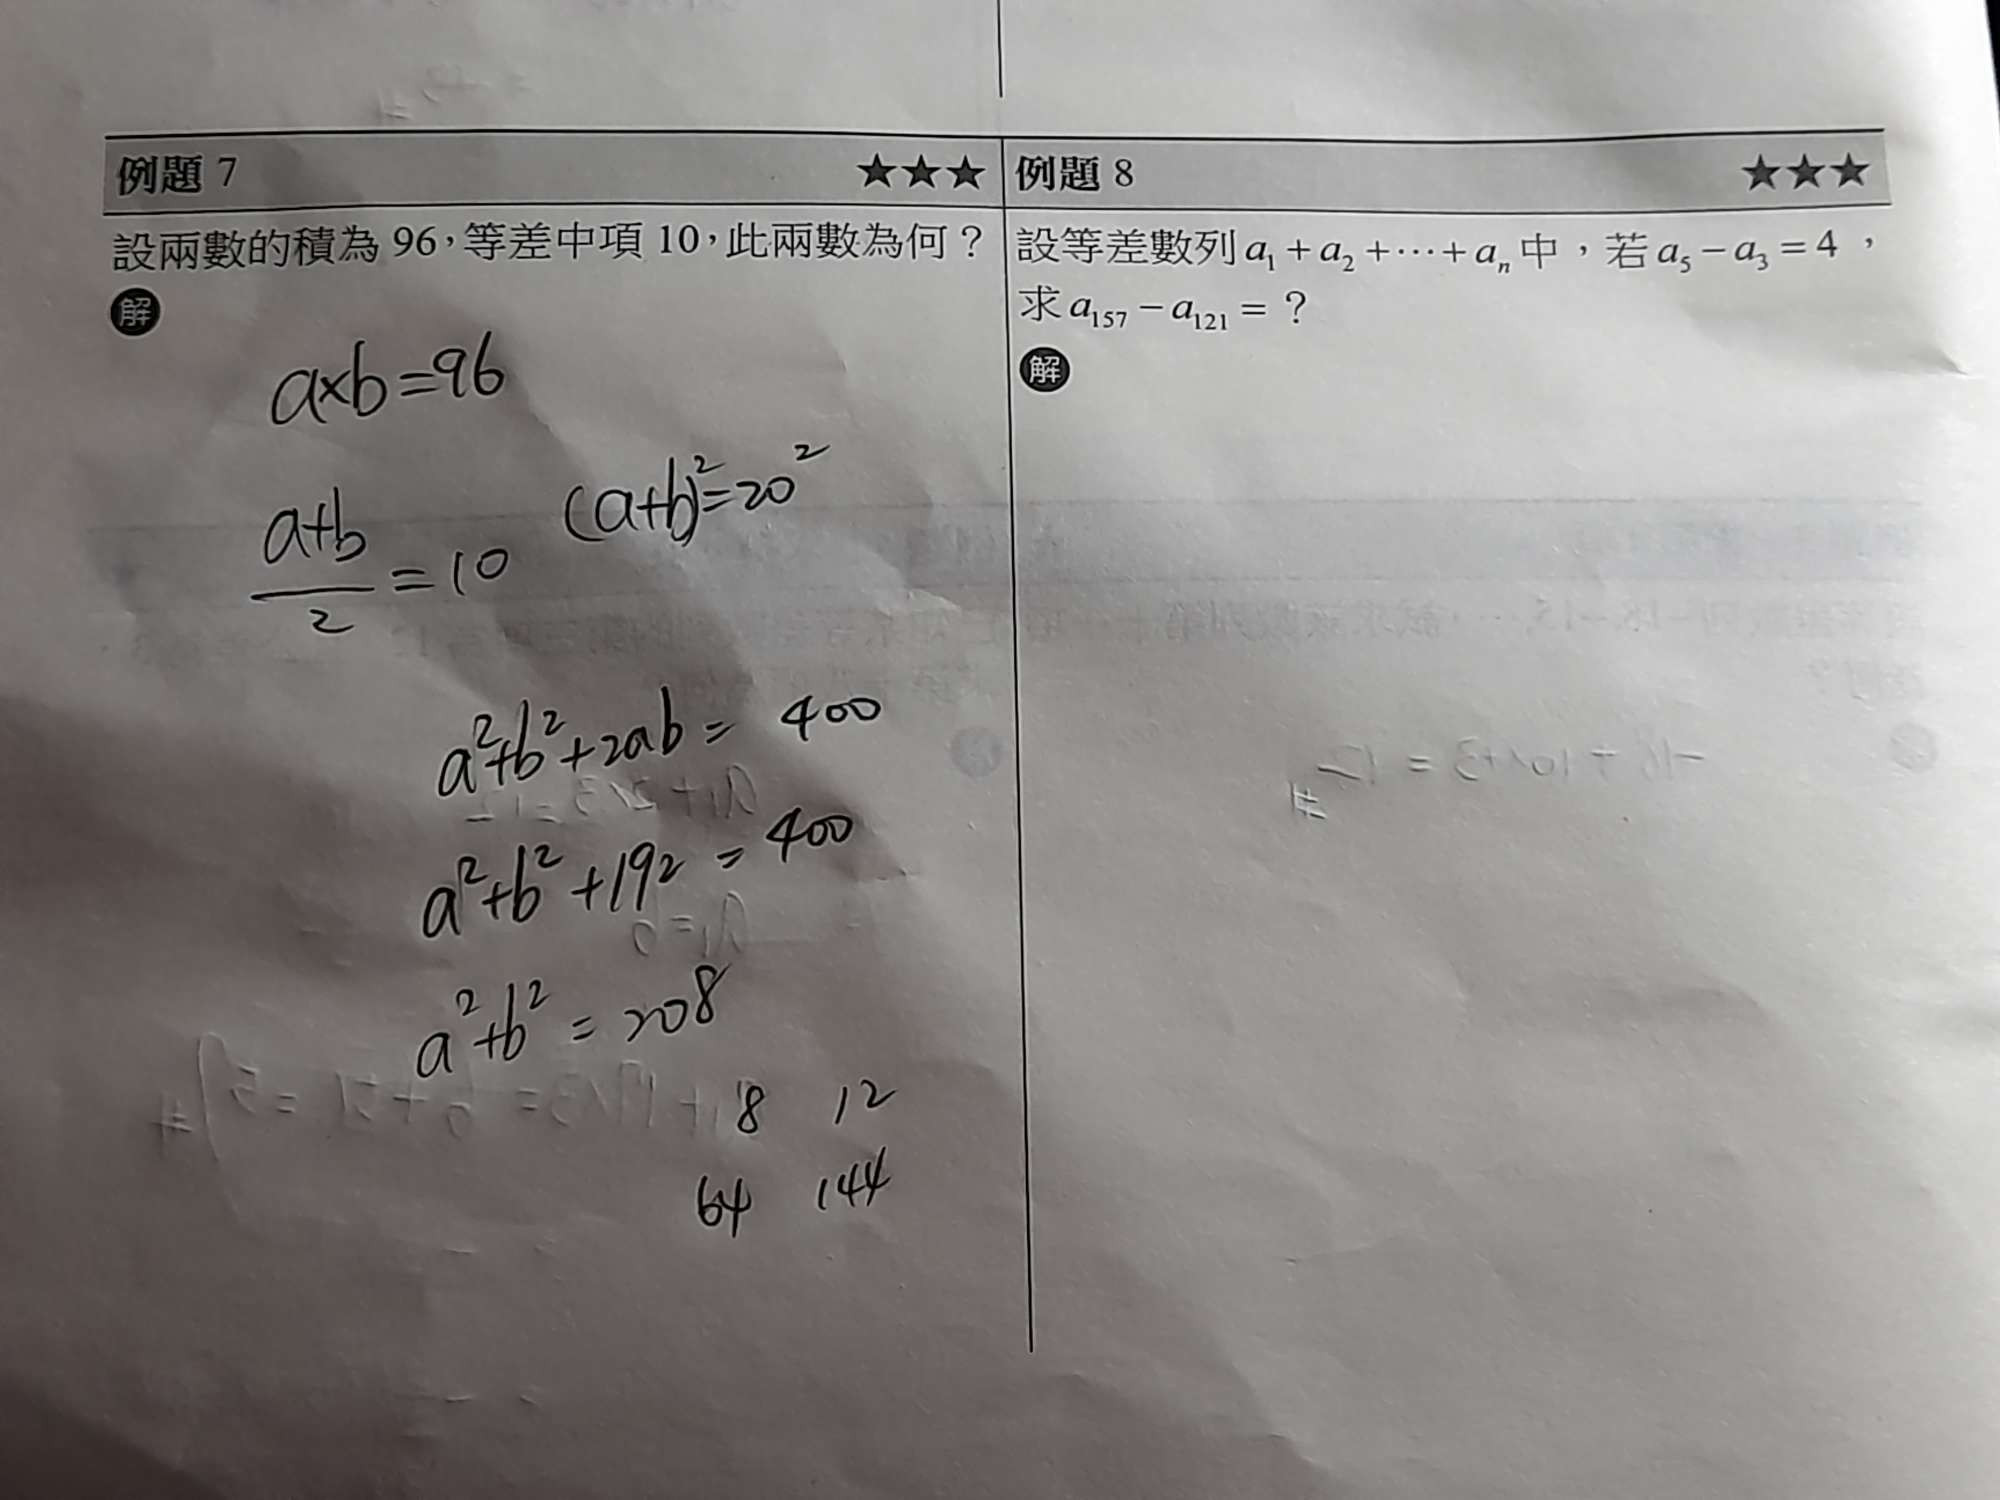 例題 7 ★★★
設兩數的積為 96，等差中項 10，此兩數為何？
解
a×b=96
(a+b)²=20²
a+b/2=10
a²+b²+2ab=400
a²+b²+192=400
a²+b²=208
8 12
64 144
例題 8 ★★★
設等差數列 a₁+a₂+⋯+aₙ 中，若 a₅−a₃=4，
求 a₁₅₇−a₁₂₁=？
解